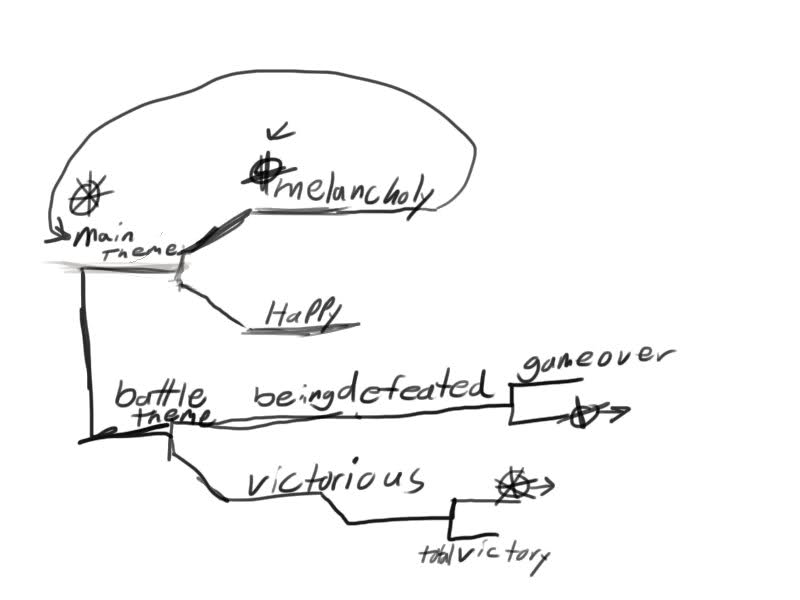 melancholy
main
Theme
Happy
gameover
battle
theme
beingdefeated
victorious
total victory